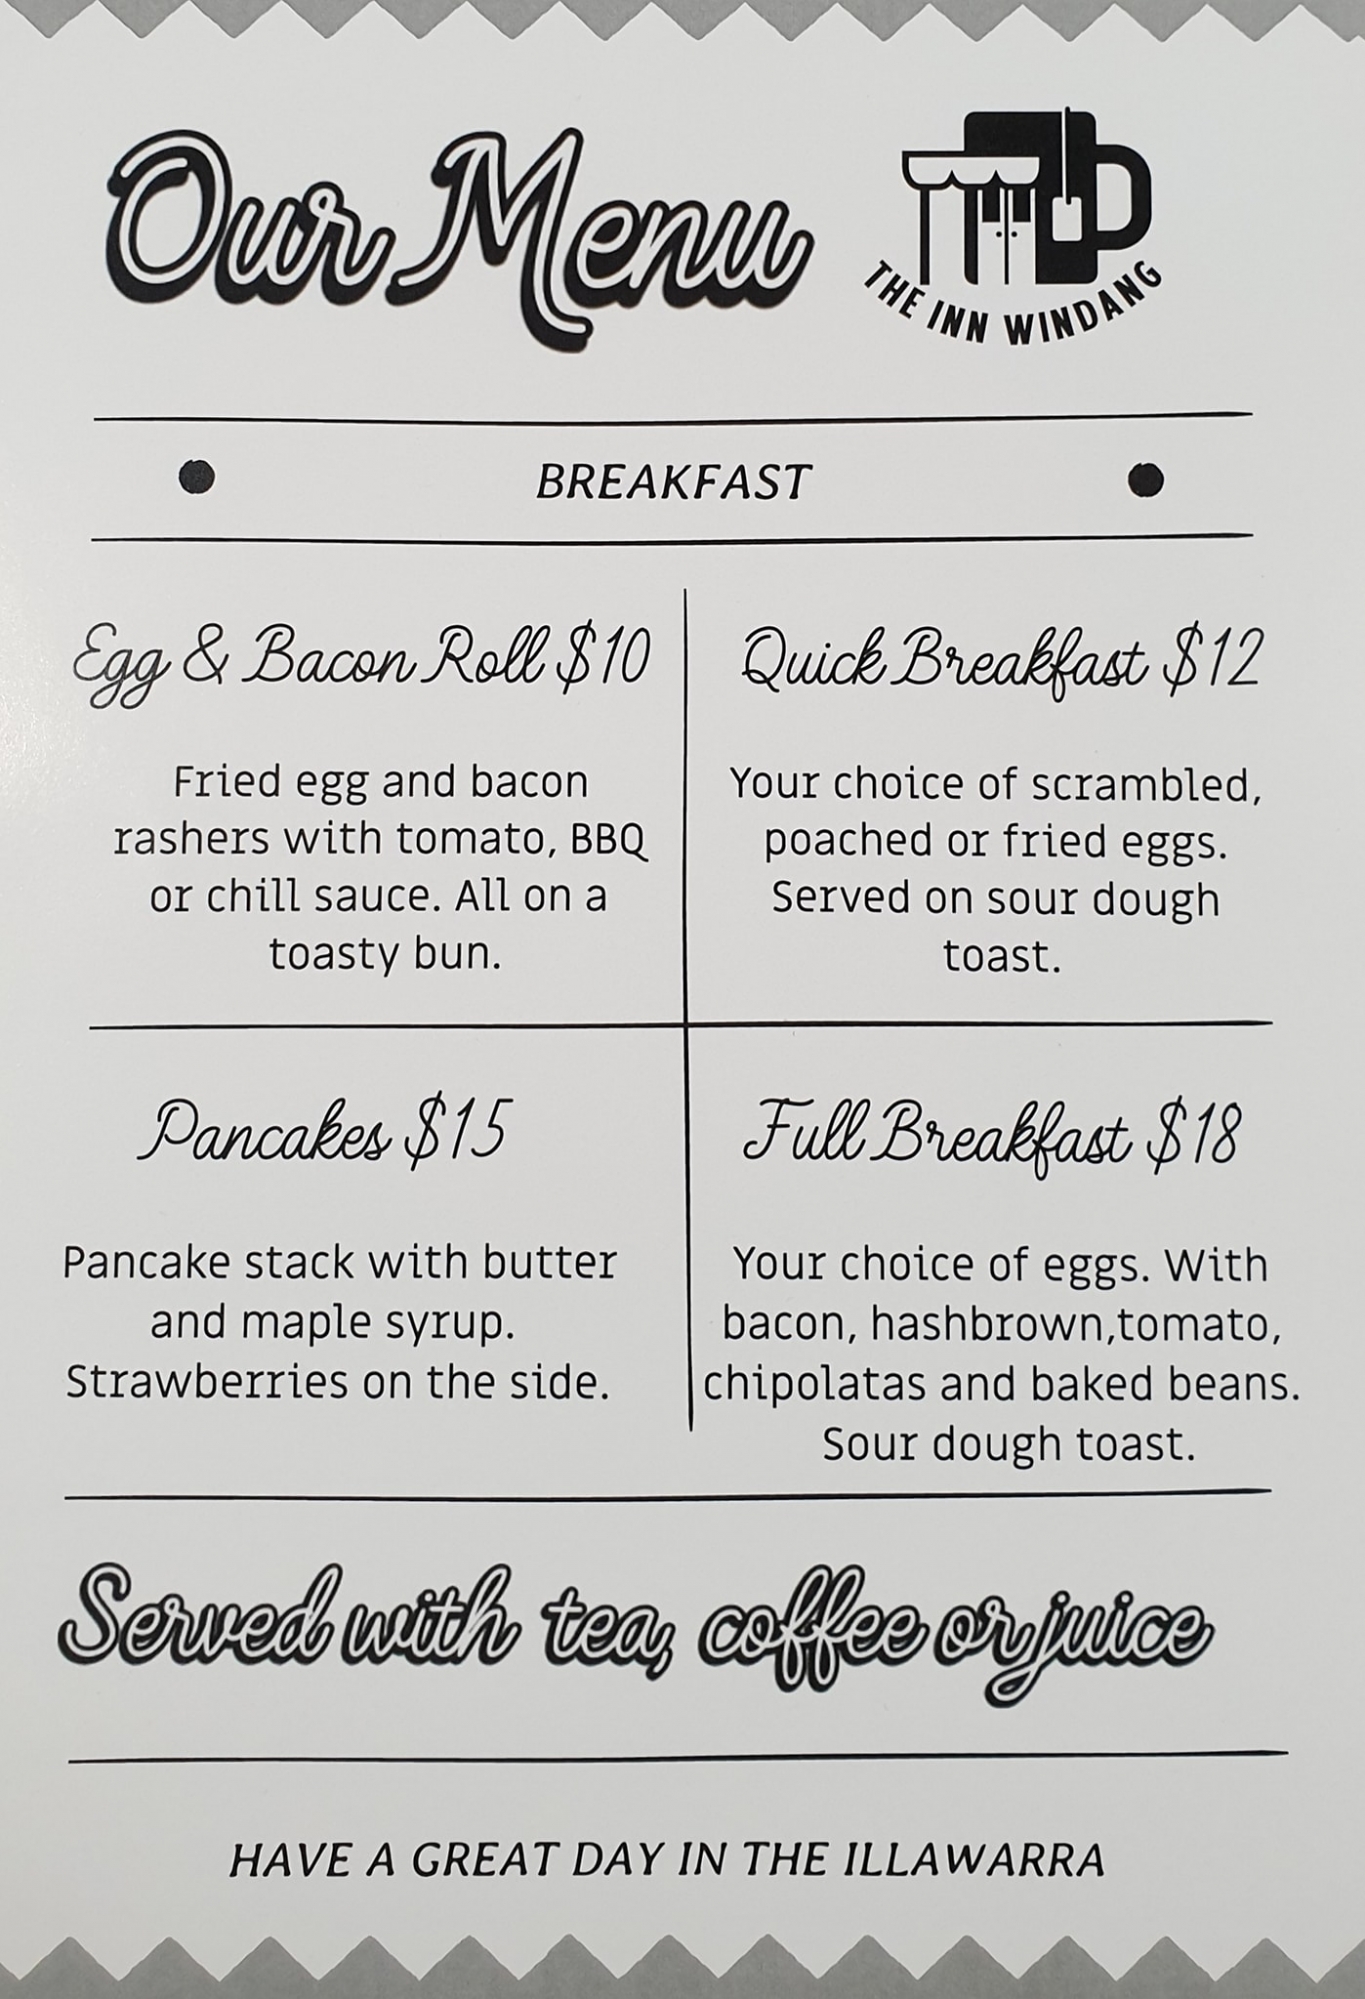 Our Menu
THE INN WINDANG
BREAKFAST
Egg & Bacon Roll $10
Fried egg and bacon
rashers with tomato, BBQ
or chill sauce. All on a
toasty bun.
Quick Breakfast $12
Your choice of scrambled,
poached or fried eggs.
Served on sour dough
toast.
Pancakes $15
Pancake stack with butter
and maple syrup.
Strawberries on the side.
Full Breakfast $18
Your choice of eggs. With
bacon, hashbrown,tomato,
chipolatas and baked beans.
Sour dough toast.
Served with tea, coffee or juice
HAVE A GREAT DAY IN THE ILLAWARRA